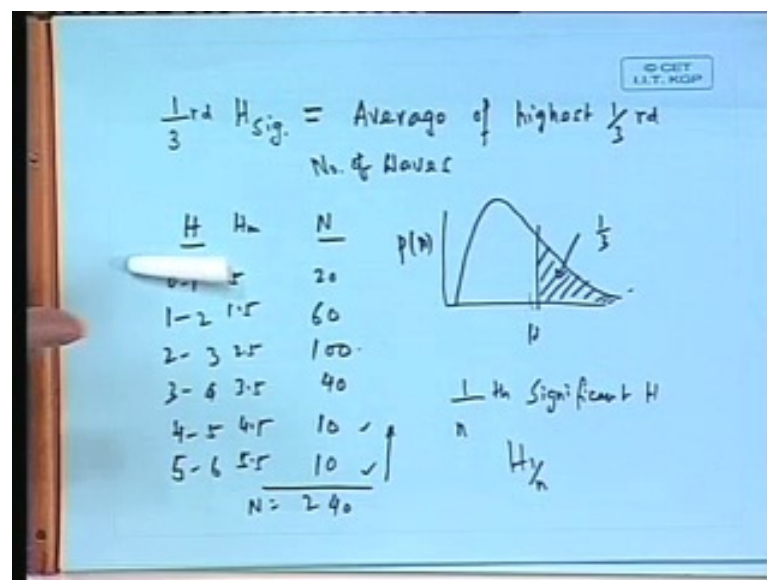 © CET
I.I.T. KGP
1/3 rd H Sig. = Average of highest 1/3 rd
No. of Waves
H Hm N
0-1 5 20
1-2 1.5 60
2-3 2.5 100
3-4 3.5 40
4-5 4.5 10 ✓
5-6 5.5 10 ✓
N = 240
P(H)
1/3
H
1/n th Significant H
H1/n